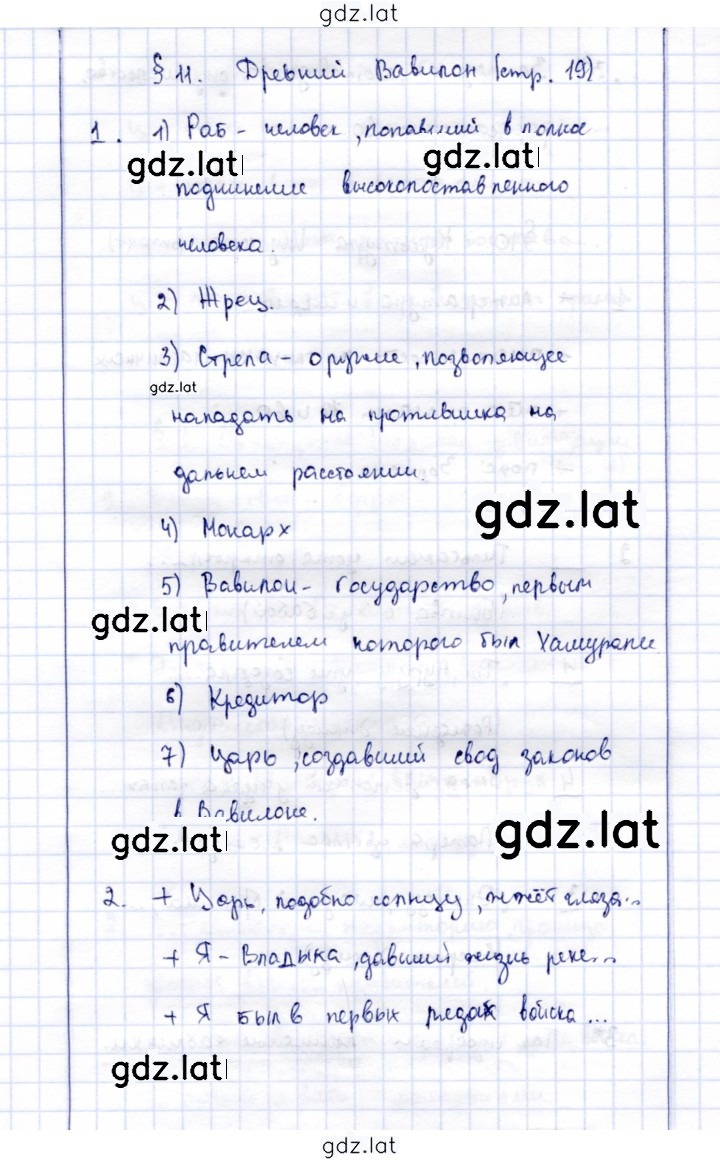 gdz.lat
§ 11. Древний Вавилон (стр. 19)
1. 1) Раб - человек, попавший в полное
gdz.lat gdz.lat
подчинение высокопоставленного
человека.
2) Жрец.
3) Стрела - оружие, позволяющее
gdz.lat
нападать на противника на
дальнем расстоянии.
gdz.lat
4) Монарх
5) Вавилон - государство, первым
gdz.lat
правителем которого был Хамурапи
6) Кредитор
7) Царь, создавший свод законов
в Вавилоне.
gdz.lat gdz.lat
2. + Царь, подобно солнцу, жжёт глаза...
+ Я - Владыка, давший жизнь реке...
+ Я был в первых рядах войска...
gdz.lat
gdz.lat